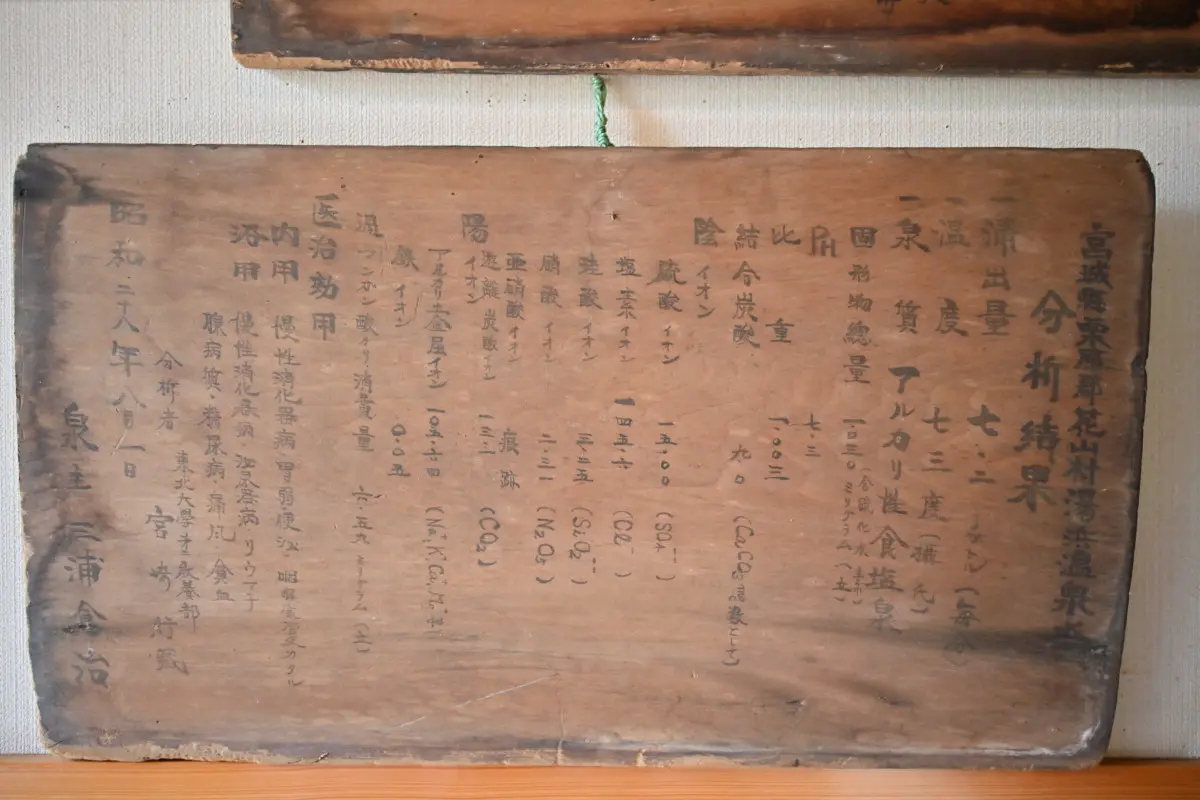 宮城縣栗原郡花山村湯浜温泉
分析結果
一涌出量 七.二 (毎分)
一温度 七三度(攝氏)
一泉質 アルカリ性食塩泉
固形物總量 一〇三〇ミリグラム(立)
PH 七.三
比重 一.〇〇三
結合炭酸 九〇 (CaCO₃として)
陰イオン
硫酸イオン 一五.〇〇 (SO₄--)
塩素イオン 一四五.六 (Cl-)
珪酸イオン 三.二五 (SiO₂--)
硝酸イオン 二.三一 (N₂O₅)
亜硝酸イオン 痕跡
遊離炭酸イオン 一三.二 (CO₂)
陽イオン
アルカリ土金属イオン 一〇五.六
鉄イオン 〇.〇五
過マンガン酸カリ消費量 六.五九 ミリグラム(立)
医治効用
内用 慢性消化器病 胃弱
浴用 慢性消化器病 リウマチ
糖尿病.痛風.貧血
分析者 東北大學
宮崎
昭和.二十八年八月一日
泉主 三浦 治